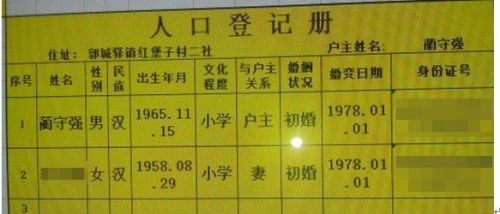 人口登记册
住址：郭城驿镇红堡子村二社 户主姓名：蔺守强
序号 姓名 性别 民族 出生年月 文化程度 与户主关系 婚姻状况 婚变日期 身份证号
1 蔺守强 男 汉 1965.11.15 小学 户主 初婚 1978.01.01
2 女 汉 1958.08.29 小学 妻 初婚 1978.01.01
3